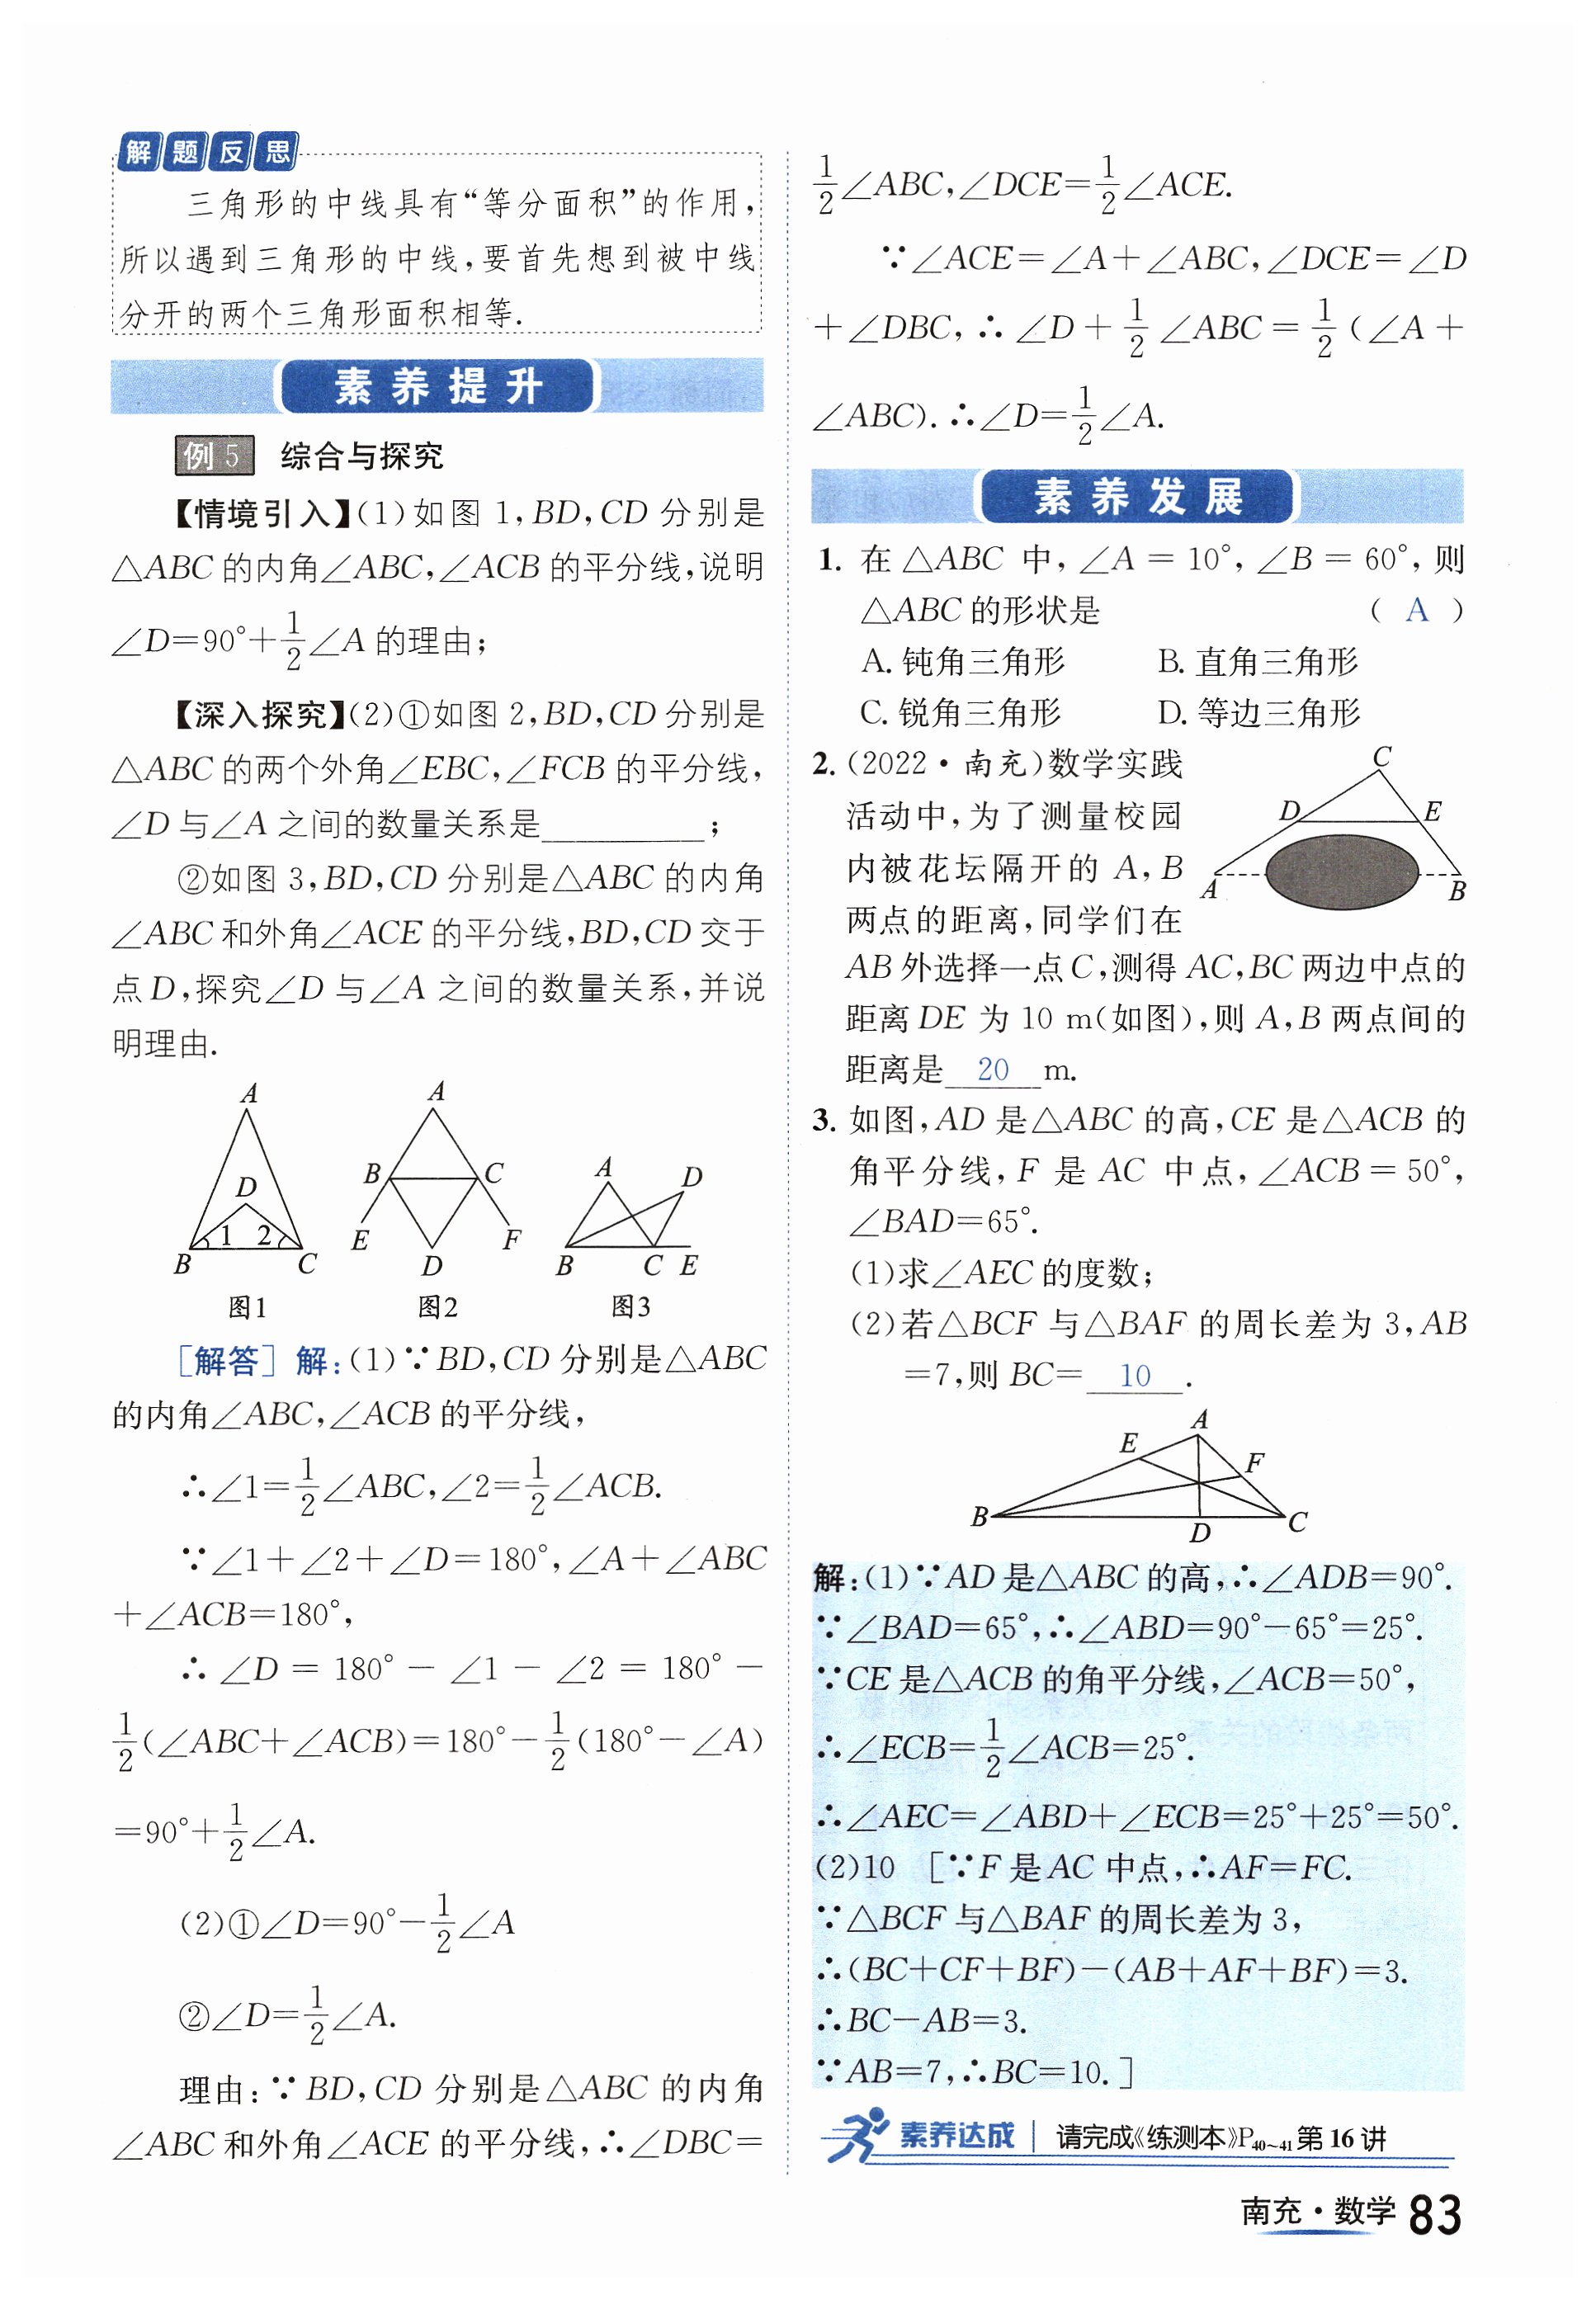 解题反思
三角形的中线具有“等分面积”的作用，
所以遇到三角形的中线，要首先想到被中线
分开的两个三角形面积相等.
素养提升
例5 综合与探究
【情境引入】(1)如图1，BD，CD分别是
△ABC的内角∠ABC，∠ACB的平分线，说明
∠D=90°+1/2∠A的理由；
【深入探究】(2)①如图2，BD，CD分别是
△ABC的两个外角∠EBC，∠FCB的平分线，
∠D与∠A之间的数量关系是______；
②如图3，BD，CD分别是△ABC的内角
∠ABC和外角∠ACE的平分线，BD，CD交于
点D，探究∠D与∠A之间的数量关系，并说
明理由.
A
D
1 2
B C
图1
A
B C
E F
D
图2
A D
B C E
图3
[解答] 解：(1)∵BD，CD分别是△ABC
的内角∠ABC，∠ACB的平分线，
∴∠1=1/2∠ABC，∠2=1/2∠ACB.
∵∠1+∠2+∠D=180°，∠A+∠ABC
+∠ACB=180°，
∴∠D=180°-∠1-∠2=180°-
1/2(∠ABC+∠ACB)=180°-1/2(180°-∠A)
=90°+1/2∠A.
(2)①∠D=90°-1/2∠A
②∠D=1/2∠A.
理由：∵BD，CD分别是△ABC的内角
∠ABC和外角∠ACE的平分线，∴∠DBC=
1/2∠ABC，∠DCE=1/2∠ACE.
∵∠ACE=∠A+∠ABC，∠DCE=∠D
+∠DBC，∴∠D+1/2∠ABC=1/2(∠A+
∠ABC).∴∠D=1/2∠A.
素养发展
1. 在△ABC中，∠A=10°，∠B=60°，则
△ABC的形状是 （ A ）
A. 钝角三角形 B. 直角三角形
C. 锐角三角形 D. 等边三角形
2.(2022·南充)数学实践
活动中，为了测量校园
内被花坛隔开的A，B
两点的距离，同学们在
AB外选择一点C，测得AC，BC两边中点的
距离DE为10 m(如图)，则A，B两点间的
距离是 20 m.
C
D E
A B
3. 如图，AD是△ABC的高，CE是△ACB的
角平分线，F是AC中点，∠ACB=50°，
∠BAD=65°.
(1)求∠AEC的度数；
(2)若△BCF与△BAF的周长差为3，AB
=7，则BC= 10 .
A
E F
B D C
解：(1)∵AD是△ABC的高，∴∠ADB=90°.
∵∠BAD=65°，∴∠ABD=90°-65°=25°.
∵CE是△ACB的角平分线，∠ACB=50°，
∴∠ECB=1/2∠ACB=25°.
∴∠AEC=∠ABD+∠ECB=25°+25°=50°.
(2)10 [∵F是AC中点，∴AF=FC.
∵△BCF与△BAF的周长差为3，
∴(BC+CF+BF)-(AB+AF+BF)=3.
∴BC-AB=3.
∵AB=7，∴BC=10.]
素养达成 | 请完成《练测本》P40~41第16讲
南充·数学 83